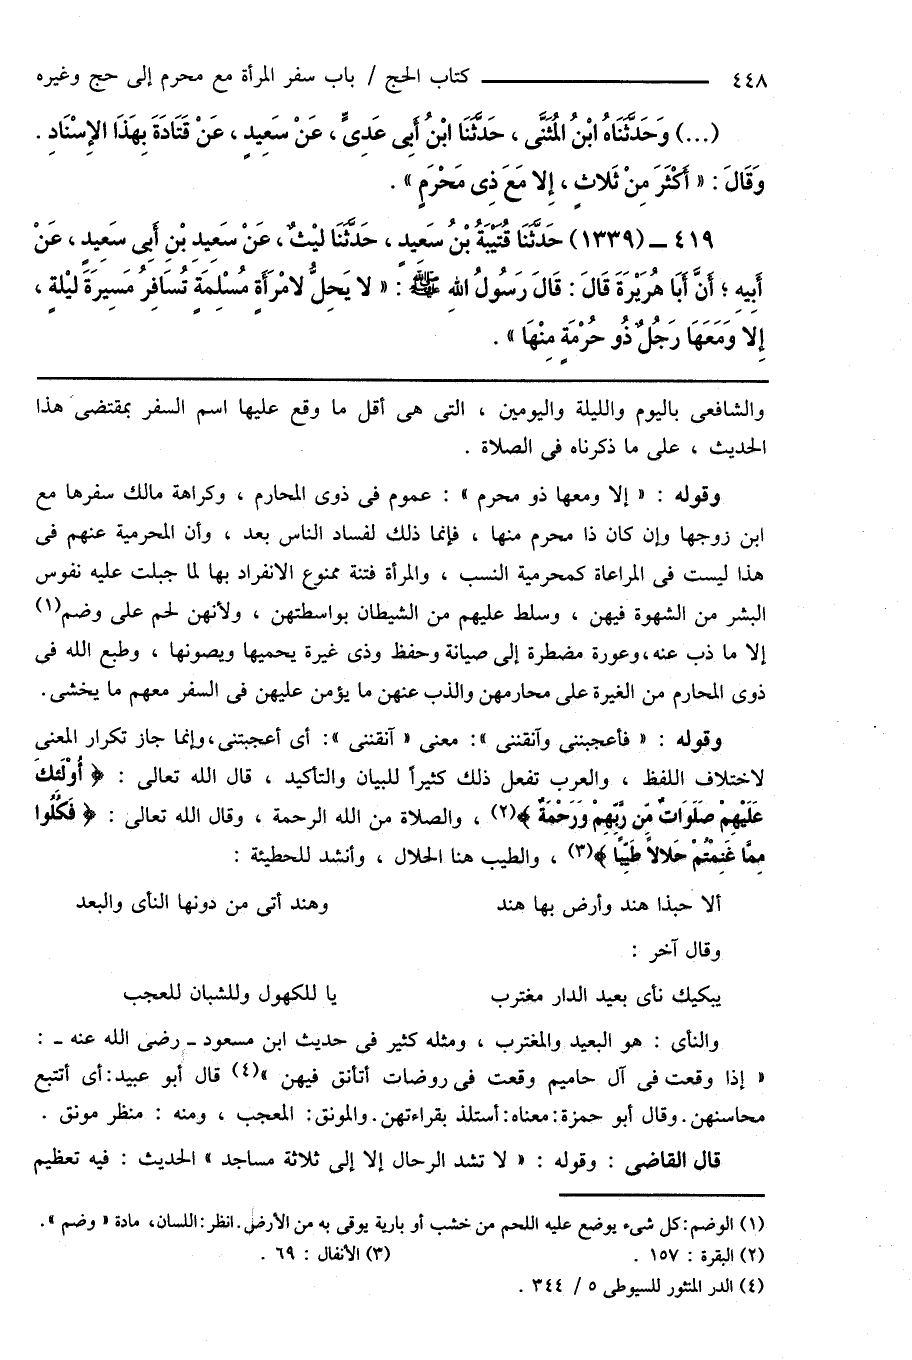 ٤٤٨ ــــــــــــــــ كتاب الحج / باب سفر المرأة مع محرم إلى حج وغيره
(...) وَحَدَّثَنَاهُ ابْنُ الْمُثَنَّى ، حَدَّثَنَا ابْنُ أَبِى عَدِىٍّ ، عَنْ سَعِيدٍ ، عَنْ قَتَادَةَ بِهَذَا الإِسْنَادِ .
وَقَالَ : « أَكْثَرَ مِنْ ثَلاثٍ ، إِلا مَعَ ذِى مَحْرَمٍ » .
٤١٩ ـ (١٣٣٩) حَدَّثَنَا قُتَيْبَةُ بْنُ سَعِيدٍ ، حَدَّثَنَا لَيْثٌ ، عَنْ سَعِيدِ بْنِ أَبِى سَعِيدٍ ، عَنْ
أَبِيهِ ؛ أَنَّ أَبَا هُرَيْرَةَ قَالَ : قَالَ رَسُولُ اللهِ ﷺ : « لا يَحِلُّ لامْرَأَةٍ مُسْلِمَةٍ تُسَافِرُ مَسِيرَةَ لَيْلَةٍ ،
إِلا وَمَعَهَا رَجُلٌ ذُو حُرْمَةٍ مِنْهَا » .
والشافعى باليوم والليلة واليومين ، التى هى أقل ما وقع عليها اسم السفر بمقتضى هذا
الحديث ، على ما ذكرناه فى الصلاة .
وقوله : « إلا ومعها ذو محرم » : عموم فى ذوى المحارم ، وكراهة مالك سفرها مع
ابن زوجها وإن كان ذا محرم منها ، فإنما ذلك لفساد الناس بعد ، وأن المحرمية عنهم فى
هذا ليست فى المراعاة كمحرمية النسب ، والمرأة فتنة ممنوع الانفراد بها لما جبلت عليه نفوس
البشر من الشهوة فيهن ، وسلط عليهم من الشيطان بواسطتهن ، ولأنهن لحم على وضم(١)
إلا ما ذب عنه، وعورة مضطرة إلى صيانة وحفظ وذى غيرة يحميها ويصونها ، وطبع الله فى
ذوى المحارم من الغيرة على محارمهن والذب عنهن ما يؤمن عليهن فى السفر معهم ما يخشى.
وقوله : « فأعجبننى وآنقننى »: معنى « آنقننى »: أى أعجبتنى، وإنما جاز تكرار المعنى
لاختلاف اللفظ ، والعرب تفعل ذلك كثيراً للبيان والتأكيد ، قال الله تعالى : ﴿ أُوْلَئِكَ
عَلَيْهِمْ صَلَوَاتٌ مِّن رَّبِّهِمْ وَرَحْمَةٌ ﴾(٢) ، والصلاة من الله الرحمة ، وقال الله تعالى : ﴿ فَكُلُوا
مِمَّا غَنِمْتُمْ حَلالاً طَيِّبًا ﴾(٣) ، والطيب هنا الحلال ، وأنشد للحطيئة :
ألا حبذا هند وأرض بها هند وهند أتى من دونها النأى والبعد
وقال آخر :
يبكيك نأى بعيد الدار مغترب يا للكهول وللشبان للعجب
والنأى : هو البعيد والمغترب ، ومثله كثير فى حديث ابن مسعود ـ رضى الله عنه ـ :
« إذا وقعت فى آل حاميم وقعت فى روضات أتأنق فيهن »(٤) قال أبو عبيد: أى أتتبع
محاسنهن. وقال أبو حمزة: معناه: أستلذ بقراءتهن. والمونق: المعجب ، ومنه : منظر مونق .
قال القاضى : وقوله : « لا تشد الرحال إلا إلى ثلاثة مساجد » الحديث : فيه تعظيم
(١) الوضم: كل شىء يوضع عليه اللحم من خشب أو بارية يوقى به من الأرض. انظر: اللسان، مادة « وضم ».
(٢) البقرة : ١٥٧ . (٣) الأنفال : ٦٩ .
(٤) الدر المنثور للسيوطى ٥ / ٣٤٤ .